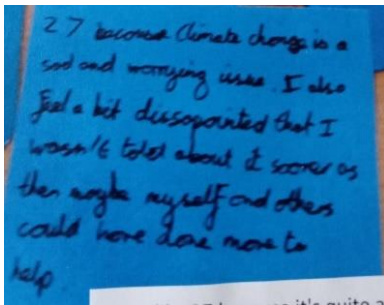 27 because Climate change is a
sad and worrying issue. I also
feel a bit dissapointed that I
wasn't told about it sooner as
then maybe myself and others
could have done more to
help.
it's quite a